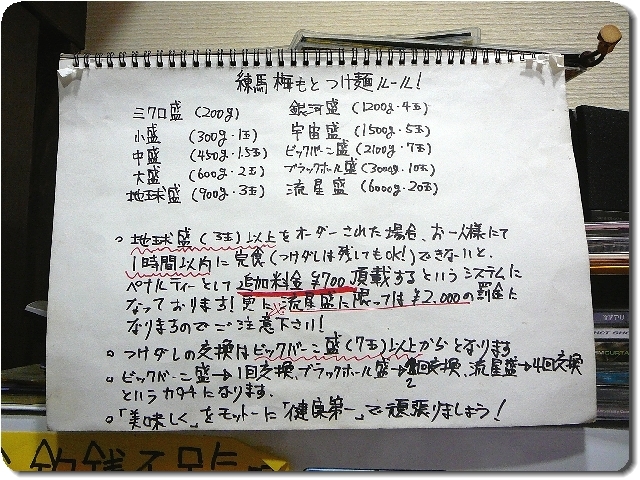 練馬 梅もとつけ麺ルール!
ミクロ盛 (200g)
小盛 (300g・1玉)
中盛 (450g・1.5玉)
大盛 (600g・2玉)
地球盛 (900g・3玉)
銀河盛 (1200g・4玉)
宇宙盛 (1500g・5玉)
ビックバーン盛 (2100g・7玉)
ブラックホール盛 (3000g・10玉)
流星盛 (6000g・20玉)
○ 地球盛(3玉)以上をオーダーされた場合、お一人様にて
1時間以内に完食(つけダレは残してもOK!)できないと、
ペナルティーとして追加料金¥700頂載するというシステムに
なっております!更に※流星盛に限っては¥2,000の罰金に
なりますのでご注意下さい!
○ つけダレの交換はビックバーン盛(7玉)以上からとなります
○ ビックバーン盛→1回交換、ブラックホール盛→2回交換、流星盛→4回交換
というカタチになります.
○「美味しく」をモットーに「健康第一」で頑張りましょう!